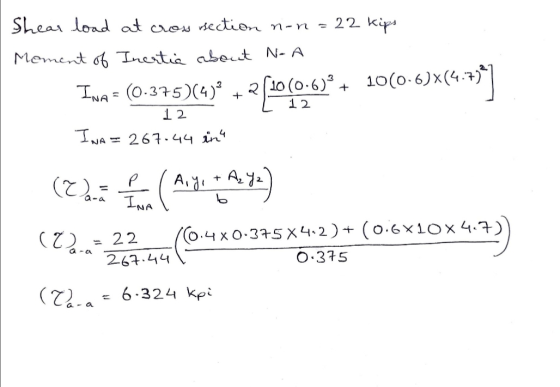 Shear load at cross section n-n = 22 kips
Moment of Inertia about N-A
I_NA = (0.375)(4)³/12 + 2[10(0.6)³/12 + 10(0.6)×(4.7)²]
I_NA = 267.44 in⁴
(τ)_a-a = P/I_NA (A₁y₁ + A₂y₂/b)
(τ)_a-a = 22/267.44 ((0.4×0.375×4.2)+(0.6×10×4.7)/0.375)
(τ)_a-a = 6.324 kpi